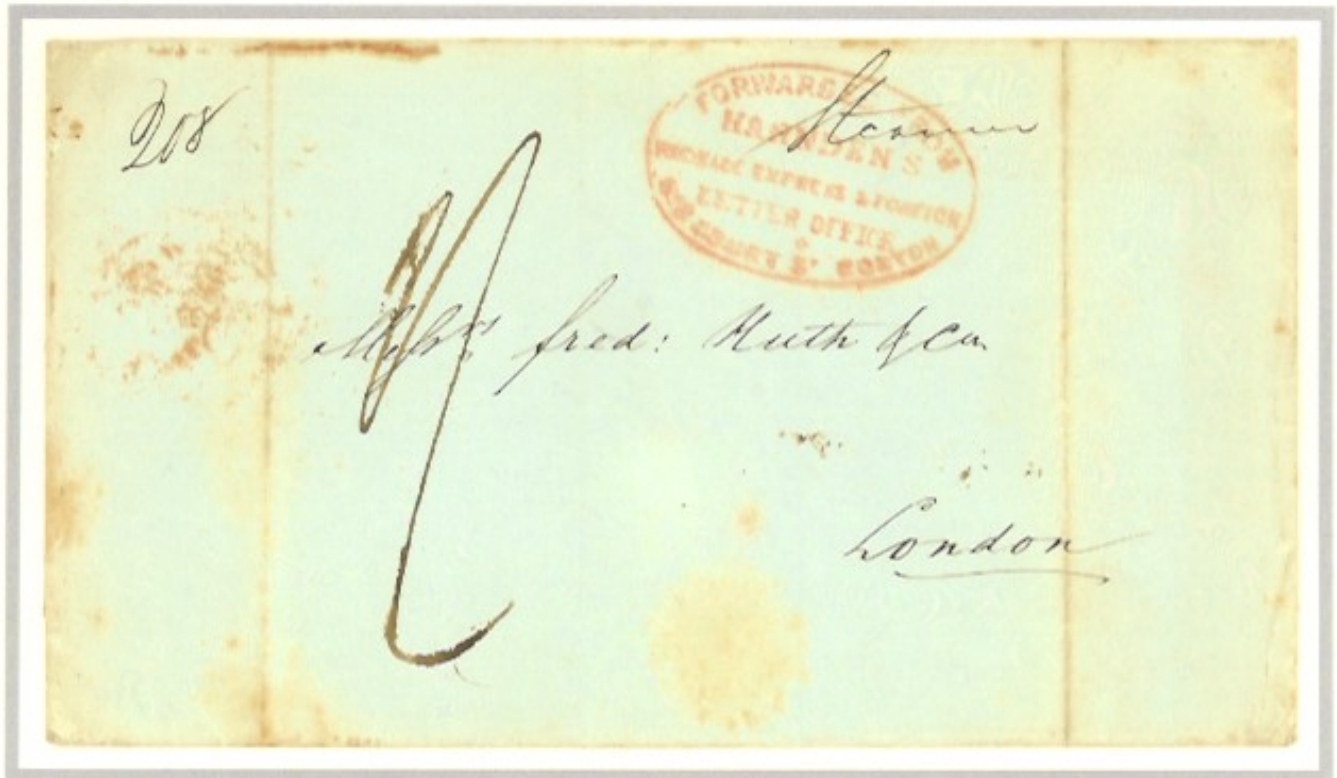 208
Steamer
FORWARDED FROM
HARNDEN'S
PACKAGE EXPRESS & FOREIGN
LETTER OFFICE
8 COURT St BOSTON
Messrs fred: Huth & Co.
London